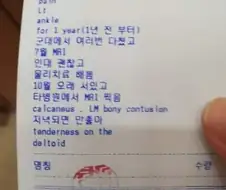 pain
Lt
ankle
for 1 year(1년 전 부터)
군대에서 여러번 다쳤고
7월 MRI
인대 괜찮고
물리치료 해봄
10월 오래 서있고
타병원에서 MRI 찍음
calcaneus . LM bony contusion
저녁되면 안좋아
tenderness on the
deltoid
명칭 수량